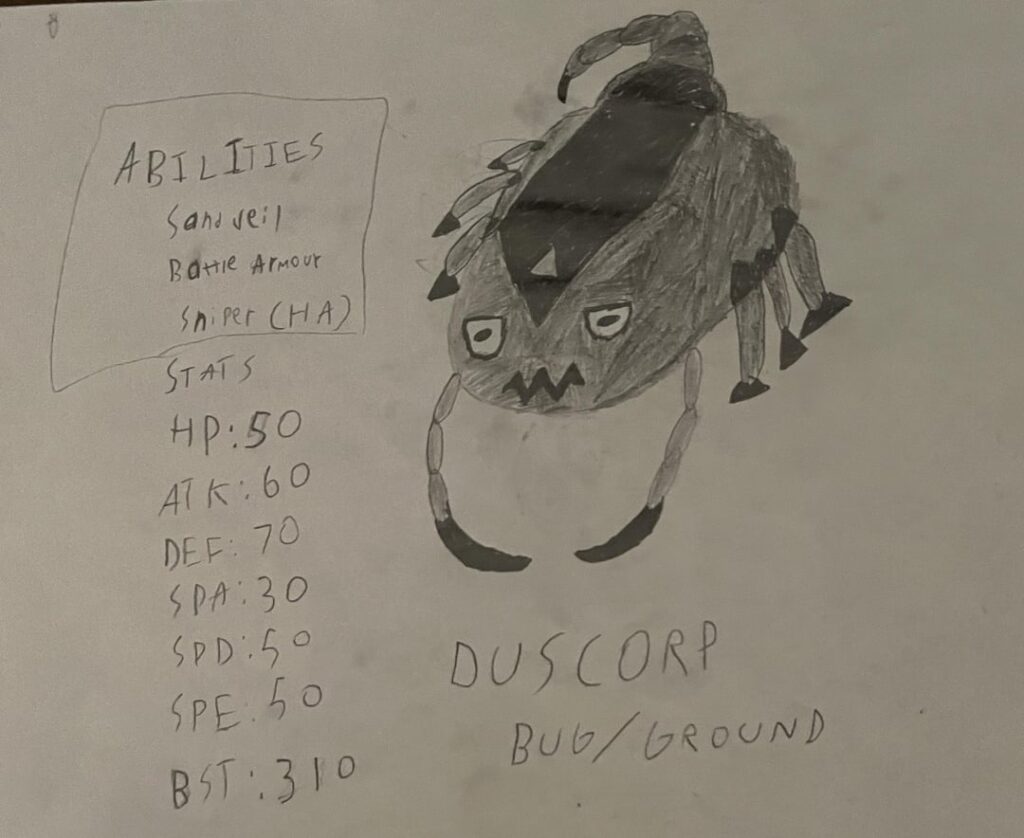 ABILITIES
Sand veil
Battle Armour
Sniper (HA)
STATS
HP: 50
ATK: 60
DEF: 70
SPA: 30
SPD: 50
SPE: 50
BST: 310
DUSCORP
BUG/GROUND